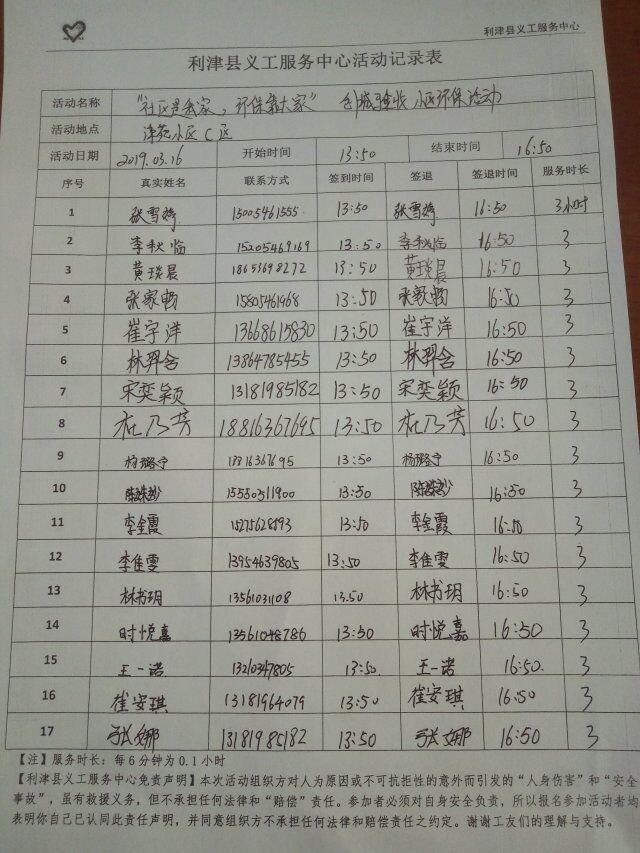 利津县义工服务中心
利津县义工服务中心活动记录表
活动名称 "社区是我家,环保靠大家" 创城验收 小区环保活动
活动地点 津苑小区C区
活动日期 2019.03.16 开始时间 13:50 结束时间 16:50
序号 真实姓名 联系方式 签到时间 签退 签退时间 服务时长
1 张雪婷 15005461555 13:50 张雪婷 16:50 3小时
2 李秋临 15205469169 13:50 李秋临 16:50 3
3 黄琰晨 18651698272 13:50 黄琰晨 16:50 3
4 张家畅 15805461968 13:50 张家畅 16:50 3
5 崔宇洋 13668615830 13:50 崔宇洋 16:50 3
6 林羿含 13864785455 13:50 林羿含 16:50 3
7 宋奕颖 13181985182 13:50 宋奕颖 16:50 3
8 杜乃芳 18816367695 13:50 杜乃芳 16:50 3
9 杨璐宁 18816367695 13:50 杨璐宁 16:50 3
10 15550511900 13:50 16:50 3
11 李金霞 13:50 李金霞 16:50 3
12 李佳雯 13954639805 13:50 李佳雯 16:50 3
13 林书玥 13561031108 13.50 林书玥 16:50 3
14 时悦嘉 13561048786 13:50 时悦嘉 16:50 3
15 王一诺 13210347805 13:50. 王一诺 16:50. 3
16 崔安琪 13181964079 13:50 崔安琪 16:50 3
17 张娜 13181985182 13:50 张娜 16:50 3
【注】服务时长:每6分钟为0.1小时
【利津县义工服务中心免责声明】本次活动组织方对人为原因或不可抗拒性的意外而引发的"人身伤害"和"安全
事故",虽有救援义务,但不承担任何法律和"赔偿"责任。参加者必须对自身安全负责,所以报名参加活动者均
表明你自己已认同此责任声明,并同意组织方不承担任何法律和赔偿责任之约定。谢谢工友们的理解与支持。